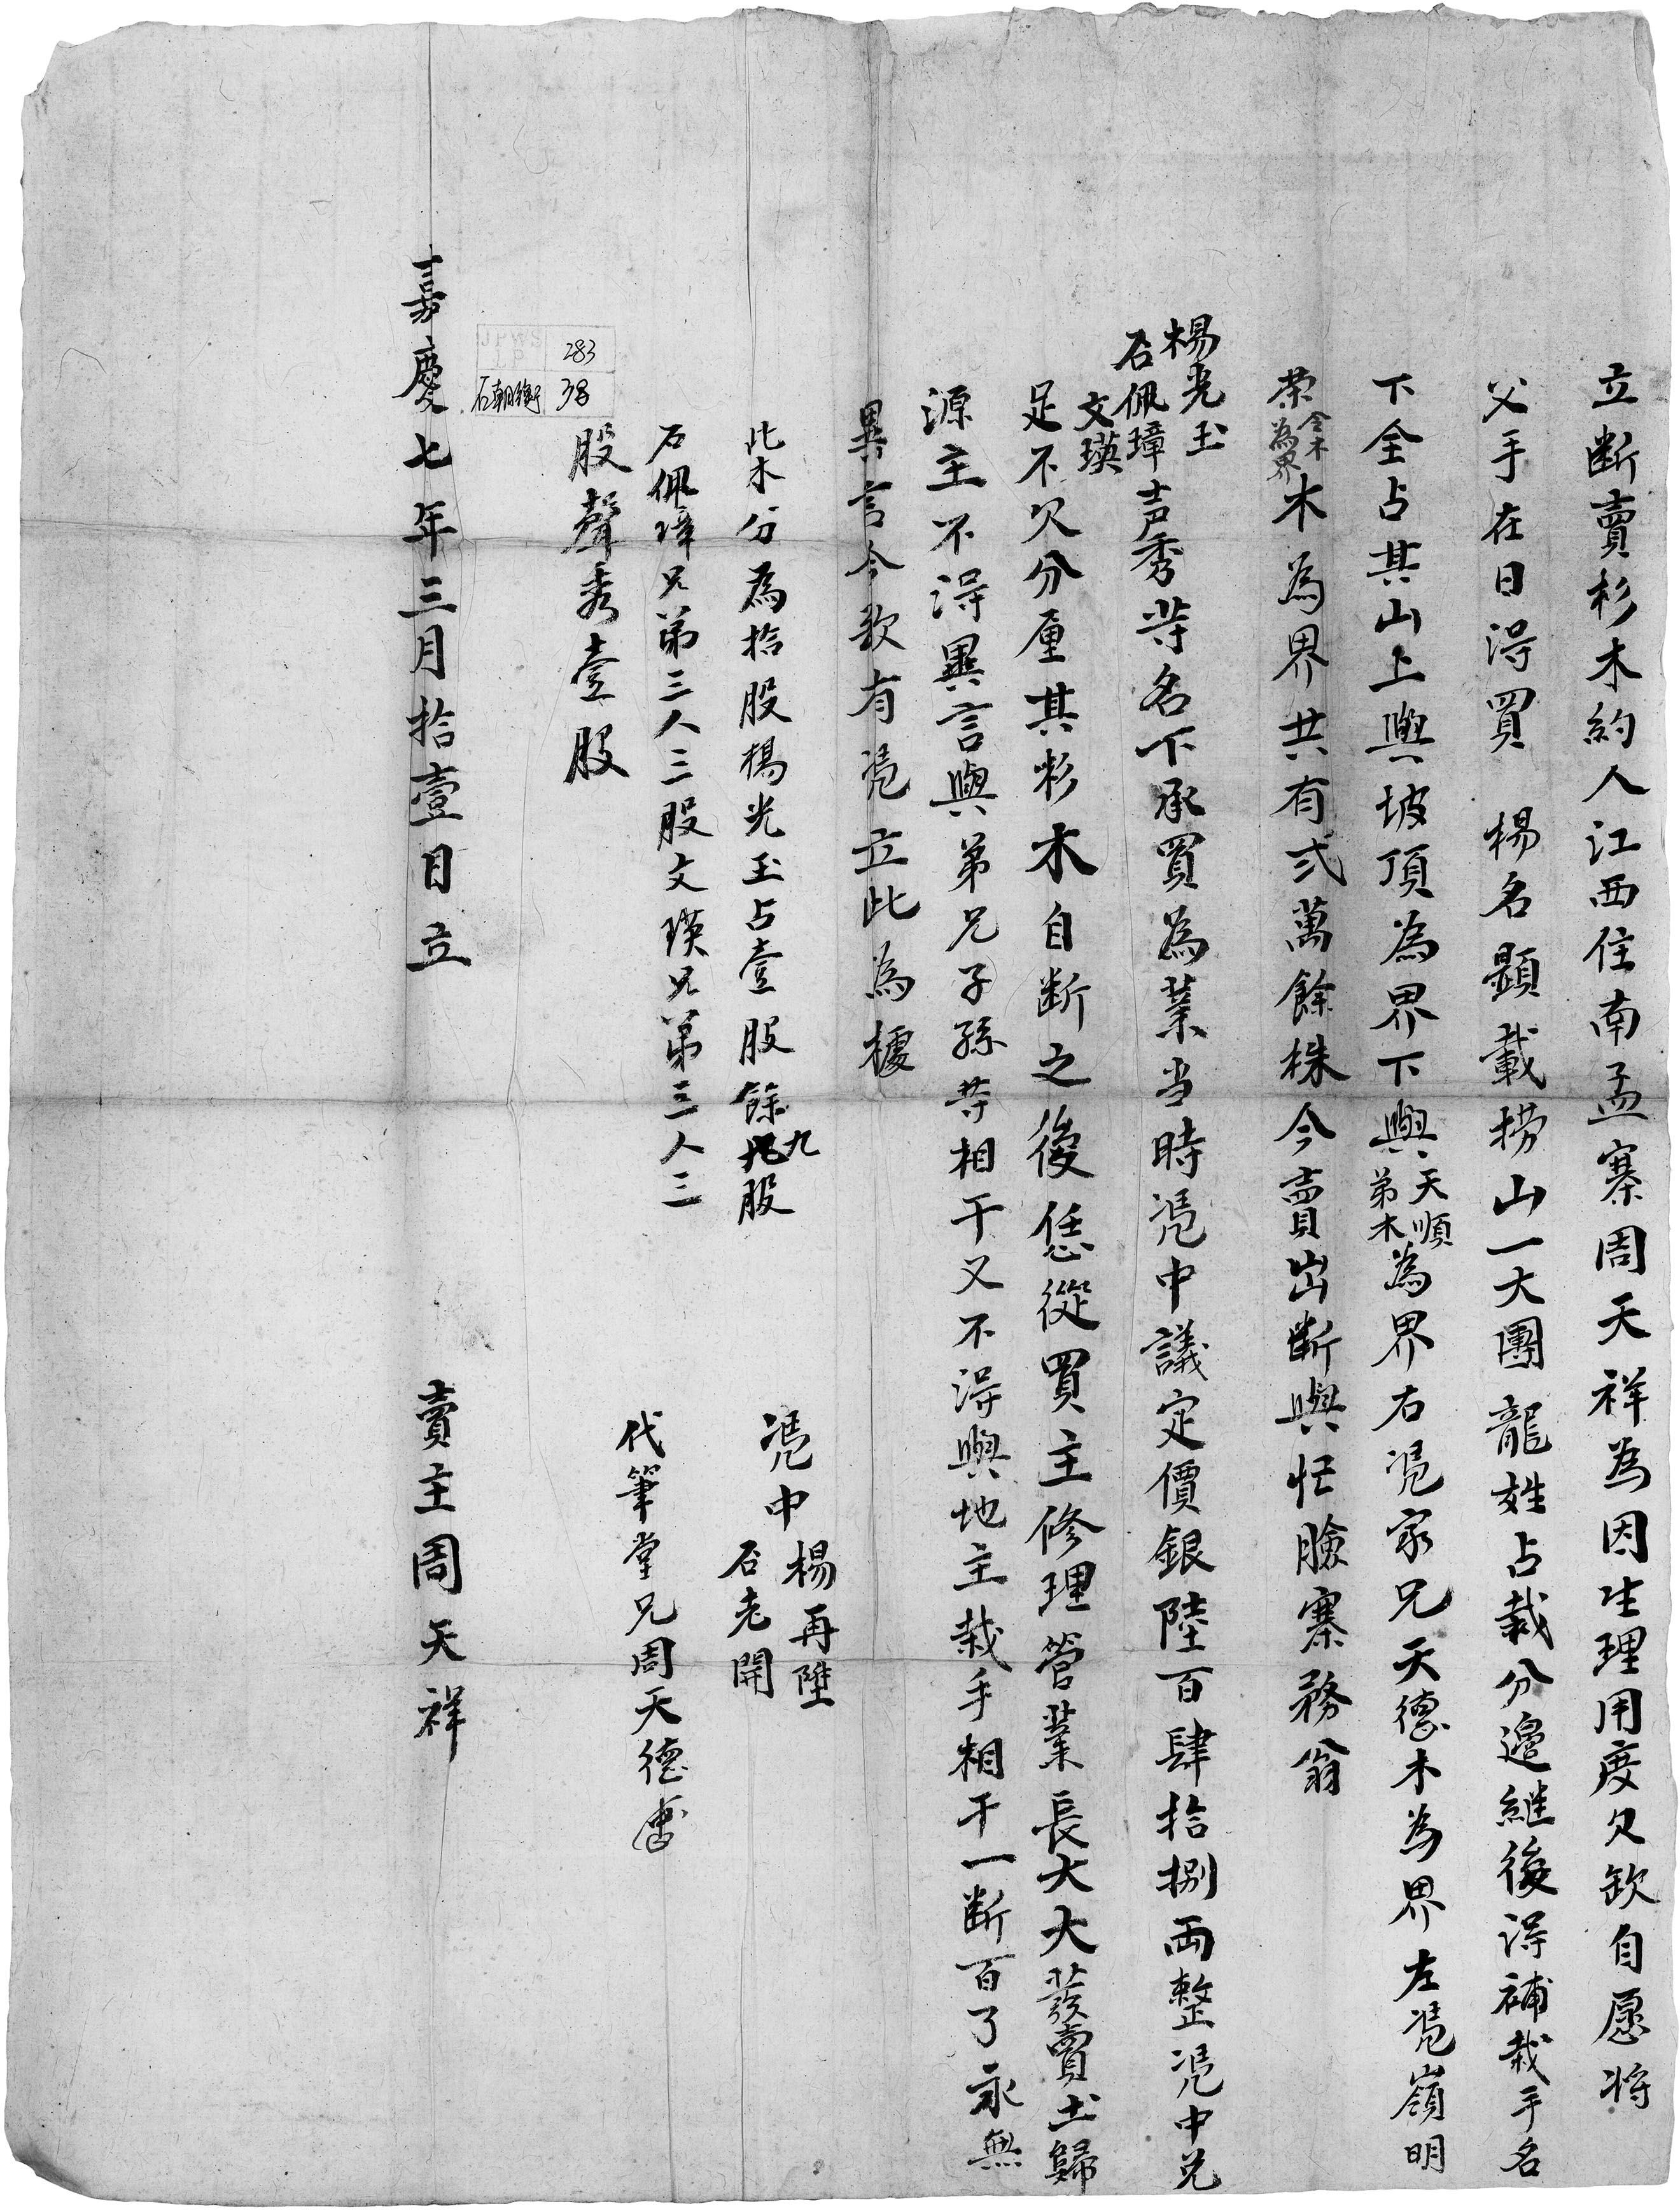 立斷賣杉木約人江西住南孟寨周天祥為因生理用度欠欽自愿将
父手在日淂買 楊名顯載撈山一大團龍姓占栽分邊継後淂補栽手名
下全占其山上與坡頂為界下與天順弟木為界右凴家兄天德木為界左凴嶺明
荣仝木為界木為界共有弍萬餘株今賣出斷與忙臉寨務翁
楊光玉
石佩璋声秀等名下承買為業当時凴中議定價銀陸百肆拾捌両整凴中兑
文瑛
足不欠分厘其杉木自断之後恁從買主修理管業長大大發賣土歸
源主不淂異言與弟兄子孫等相干又不淂與地主栽手相干一断百了永無
異言今欲有凴立此為據
此木分為拾股楊光玉占壹股餘九股
石佩璋兄弟三人三股文瑛兄弟三人三
股聲秀壹股
凴中楊再陞
石老開
代筆堂兄周天德書
嘉慶七年三月拾壹日立 賣主周天祥
JPWS
IP
283
石朝衡
38